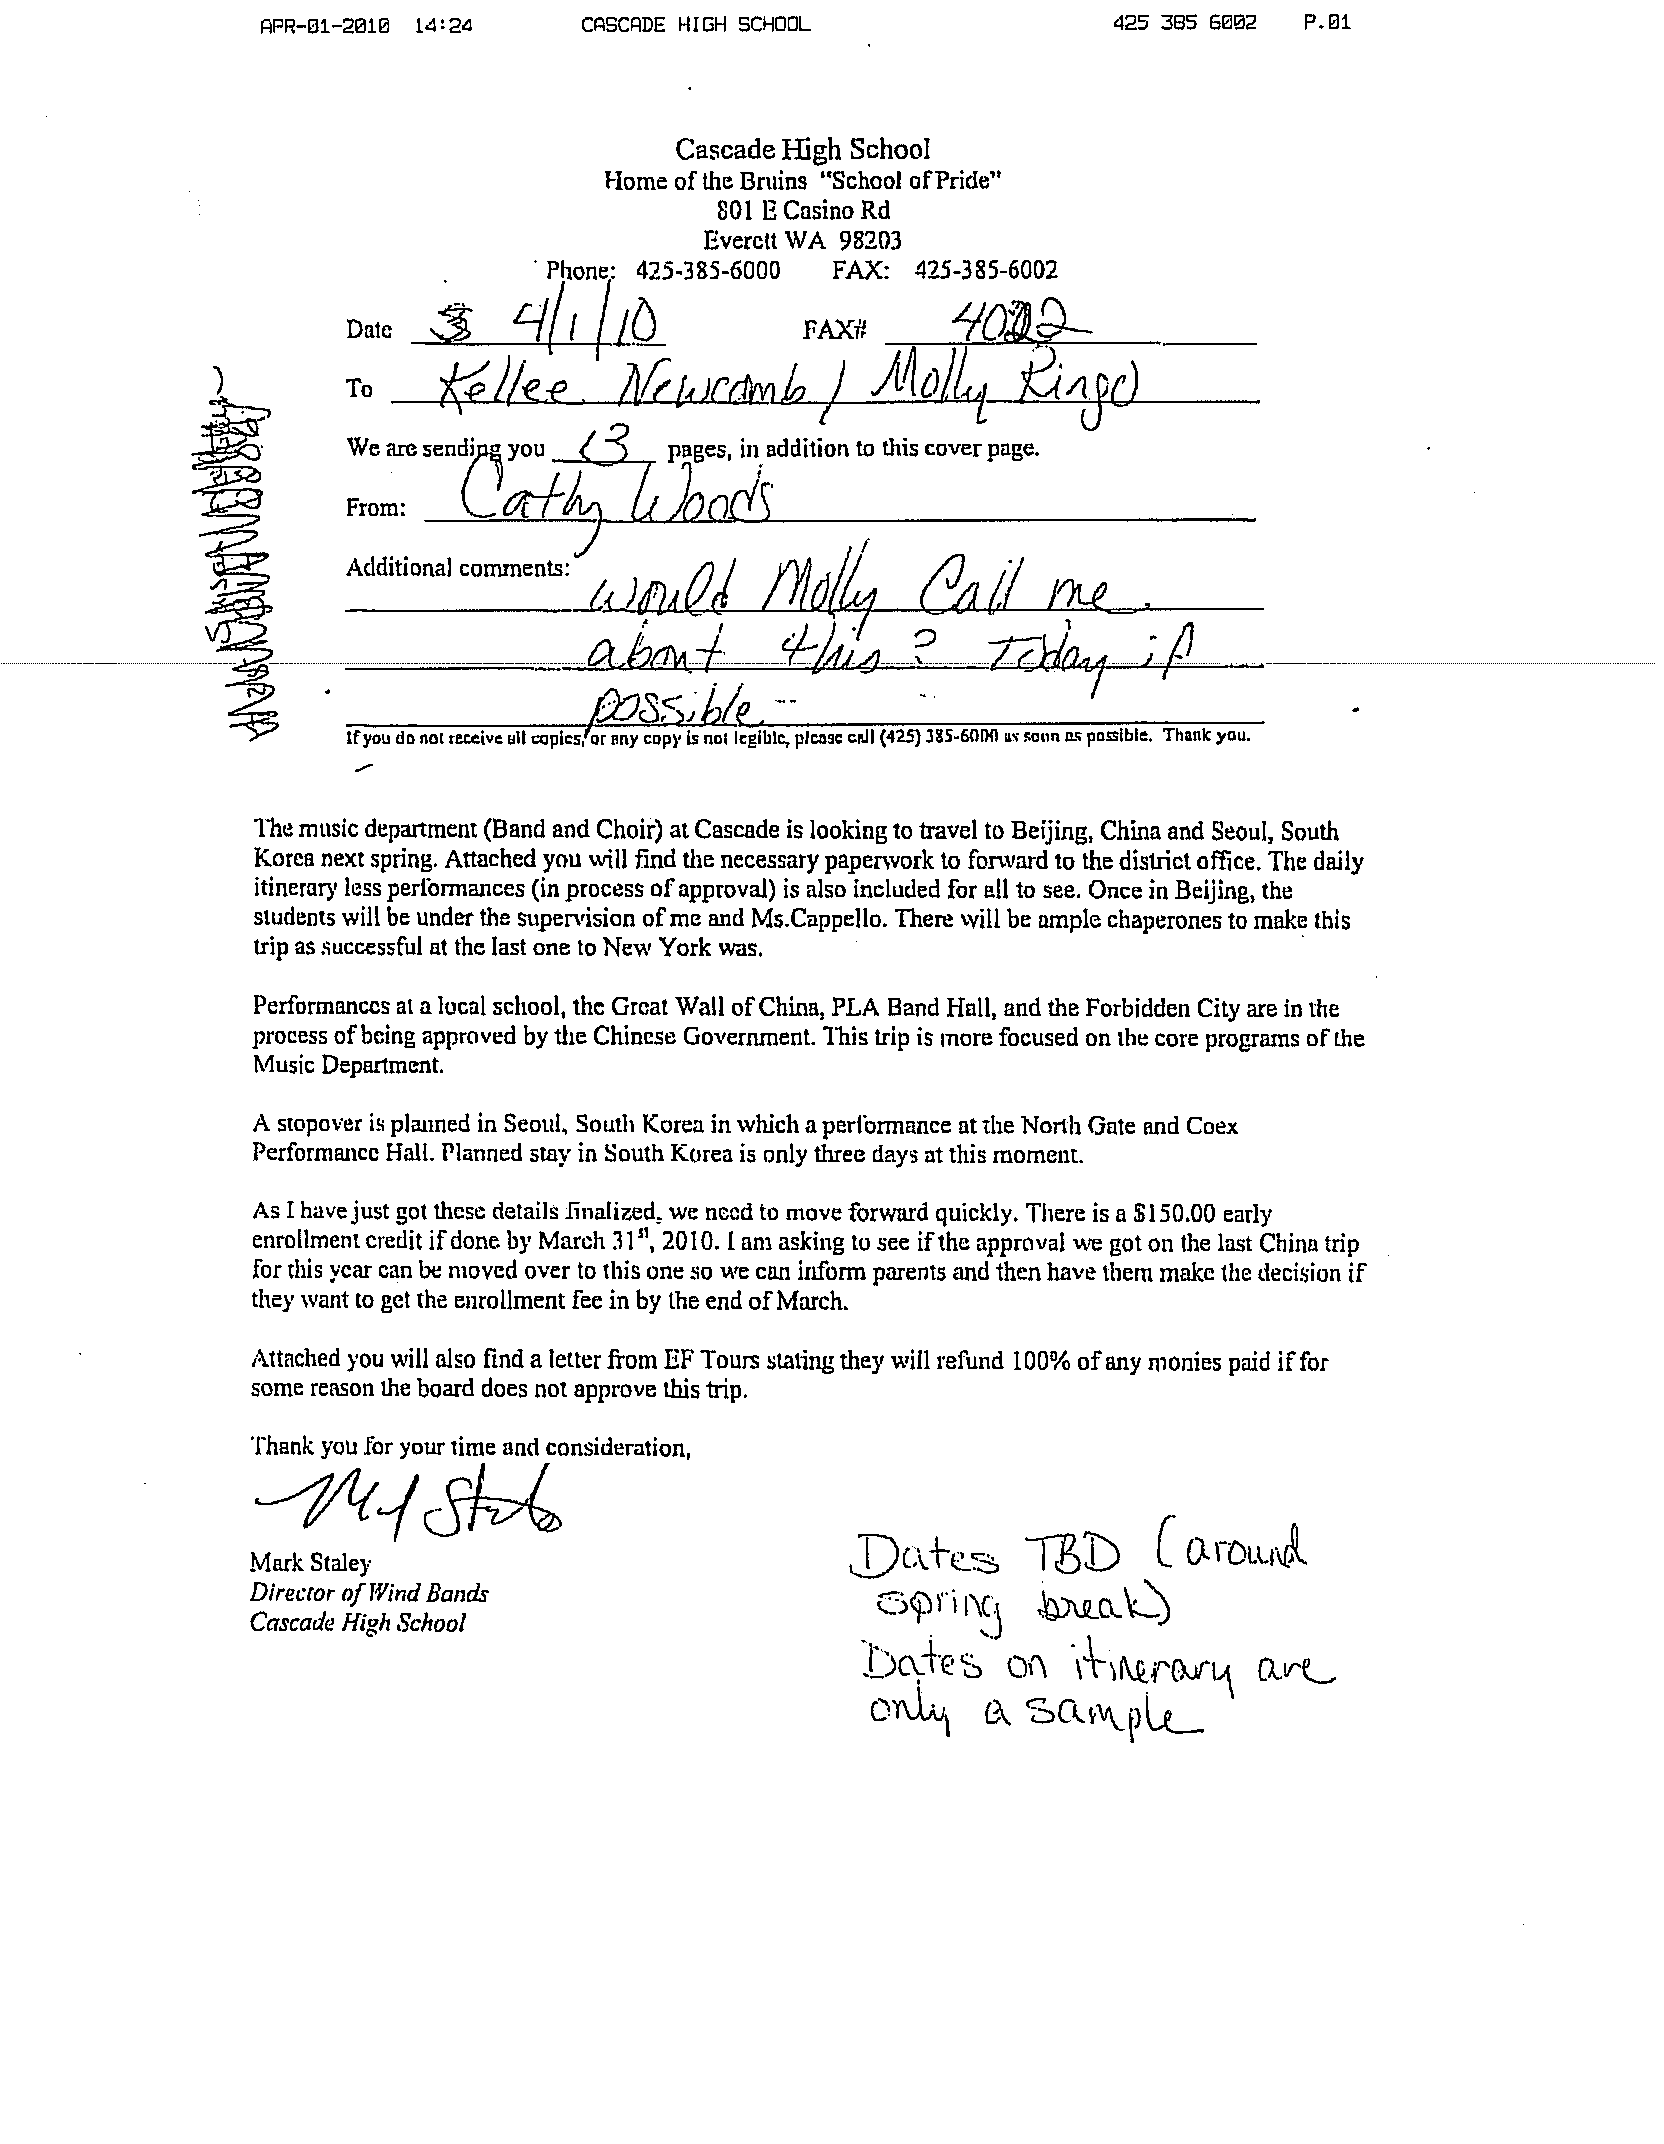 APR-01-2010 14:24 CASCADE HIGH SCHOOL 425 385 6002 P.01
Cascade High School
Home of the Bruins "School of Pride"
801 E Casino Rd
Everett WA 98203
Phone: 425-385-6000 FAX: 425-385-6002
Date 4/1/10 FAX# 4022
To Kellee Newcomb / Molly Ringo
We are sending you 13 pages, in addition to this cover page.
From: Cathy Woods
Additional comments: would Molly Call me
about this? Today if
possible
If you do not receive all copies, or any copy is not legible, please call (425) 385-6000 as soon as possible. Thank you.
The music department (Band and Choir) at Cascade is looking to travel to Beijing, China and Seoul, South
Korea next spring. Attached you will find the necessary paperwork to forward to the district office. The daily
itinerary less performances (in process of approval) is also included for all to see. Once in Beijing, the
students will be under the supervision of me and Ms.Cappello. There will be ample chaperones to make this
trip as successful at the last one to New York was.
Performances at a local school, the Great Wall of China, PLA Band Hall, and the Forbidden City are in the
process of being approved by the Chinese Government. This trip is more focused on the core programs of the
Music Department.
A stopover is planned in Seoul, South Korea in which a performance at the North Gate and Coex
Performance Hall. Planned stay in South Korea is only three days at this moment.
As I have just got these details finalized, we need to move forward quickly. There is a $150.00 early
enrollment credit if done by March 31st, 2010. I am asking to see if the approval we got on the last China trip
for this year can be moved over to this one so we can inform parents and then have them make the decision if
they want to get the enrollment fee in by the end of March.
Attached you will also find a letter from EF Tours stating they will refund 100% of any monies paid if for
some reason the board does not approve this trip.
Thank you for your time and consideration,
Mark Staley
Director of Wind Bands
Cascade High School
Dates TBD (around
spring break)
Dates on itinerary are
only a sample